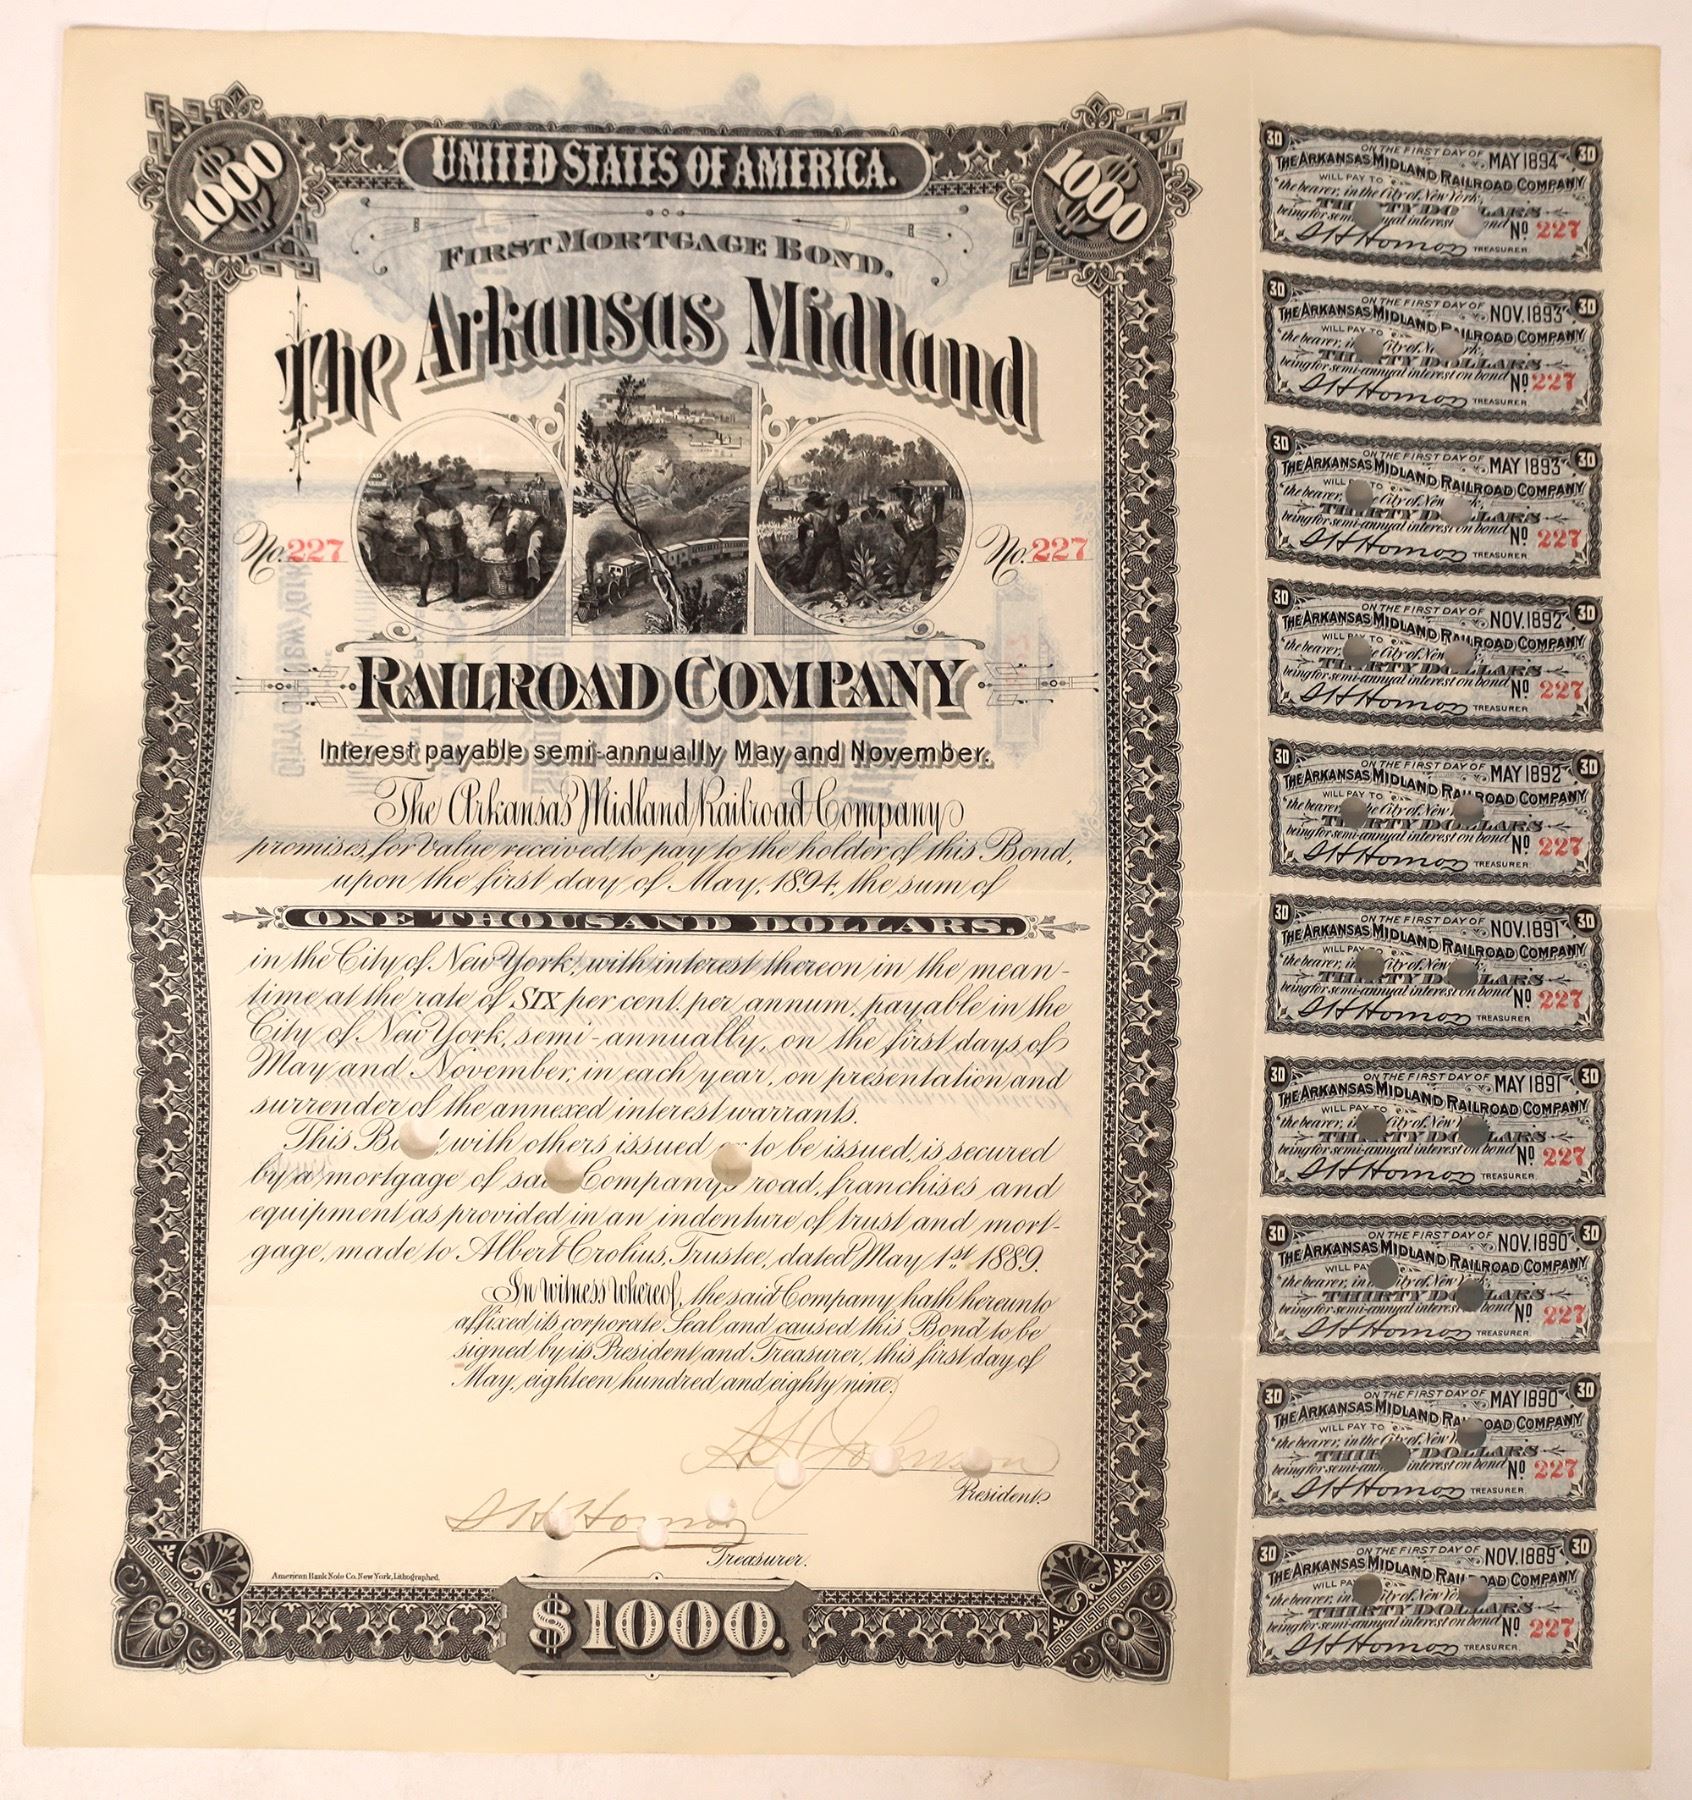 UNITED STATES OF AMERICA.
$1000
$1000
FIRST MORTGAGE BOND.
The Arkansas Midland
No. 227
No. 227
RAILROAD COMPANY
Interest payable semi-annually May and November.
The Arkansas Midland Railroad Company
promises, for value received, to pay to the holder of this Bond,
upon the first day of May, 1894, the sum of
ONE THOUSAND DOLLARS.
in the City of New York, with interest thereon in the mean-
time at the rate of SIX per cent. per annum, payable in the
City of New York, semi-annually, on the first days of
May and November, in each year, on presentation and
surrender of the annexed interest warrants.
This Bond, with others issued or to be issued, is secured
by a mortgage of said Company's road, franchises and
equipment as provided in an indenture of trust and mort-
gage, made to Albert Crolius, Trustee, dated May 1st 1889.
In witness whereof, the said Company hath hereunto
affixed its corporate Seal and caused this Bond to be
signed by its President and Treasurer, this first day of
May, eighteen hundred and eighty nine.
Johnson
President
S H Hornor
Treasurer.
American Bank Note Co. New York, Lithographed.
$1000.
30 ON THE FIRST DAY OF MAY 1894 30
THE ARKANSAS MIDLAND RAILROAD COMPANY
WILL PAY TO
the bearer, in the City of New York,
THIRTY DOLLARS
being for semi-annual interest on bond No 227
S H Hornor TREASURER
30 ON THE FIRST DAY OF NOV. 1893 30
THE ARKANSAS MIDLAND RAILROAD COMPANY
WILL PAY TO
the bearer, in the City of New York,
THIRTY DOLLARS
being for semi-annual interest on bond No 227
S H Hornor TREASURER
30 ON THE FIRST DAY OF MAY 1893 30
THE ARKANSAS MIDLAND RAILROAD COMPANY
WILL PAY TO
the bearer, in the City of New York,
THIRTY DOLLARS
being for semi-annual interest on bond No 227
S H Hornor TREASURER
30 ON THE FIRST DAY OF NOV. 1892 30
THE ARKANSAS MIDLAND RAILROAD COMPANY
WILL PAY TO
the bearer, in the City of New York,
THIRTY DOLLARS
being for semi-annual interest on bond No 227
S H Hornor TREASURER
30 ON THE FIRST DAY OF MAY 1892 30
THE ARKANSAS MIDLAND RAILROAD COMPANY
WILL PAY TO
the bearer, in the City of New York,
THIRTY DOLLARS
being for semi-annual interest on bond No 227
S H Hornor TREASURER
30 ON THE FIRST DAY OF NOV. 1891 30
THE ARKANSAS MIDLAND RAILROAD COMPANY
WILL PAY TO
the bearer, in the City of New York,
THIRTY DOLLARS
being for semi-annual interest on bond No 227
S H Hornor TREASURER
30 ON THE FIRST DAY OF MAY 1891 30
THE ARKANSAS MIDLAND RAILROAD COMPANY
WILL PAY TO
the bearer, in the City of New York,
THIRTY DOLLARS
being for semi-annual interest on bond No 227
S H Hornor TREASURER
30 ON THE FIRST DAY OF NOV. 1890 30
THE ARKANSAS MIDLAND RAILROAD COMPANY
WILL PAY TO
the bearer, in the City of New York,
THIRTY DOLLARS
being for semi-annual interest on bond No 227
S H Hornor TREASURER
30 ON THE FIRST DAY OF MAY 1890 30
THE ARKANSAS MIDLAND RAILROAD COMPANY
WILL PAY TO
the bearer, in the City of New York,
THIRTY DOLLARS
being for semi-annual interest on bond No 227
S H Hornor TREASURER
30 ON THE FIRST DAY OF NOV. 1889 30
THE ARKANSAS MIDLAND RAILROAD COMPANY
WILL PAY TO
the bearer, in the City of New York,
THIRTY DOLLARS
being for semi-annual interest on bond No 227
S H Hornor TREASURER.